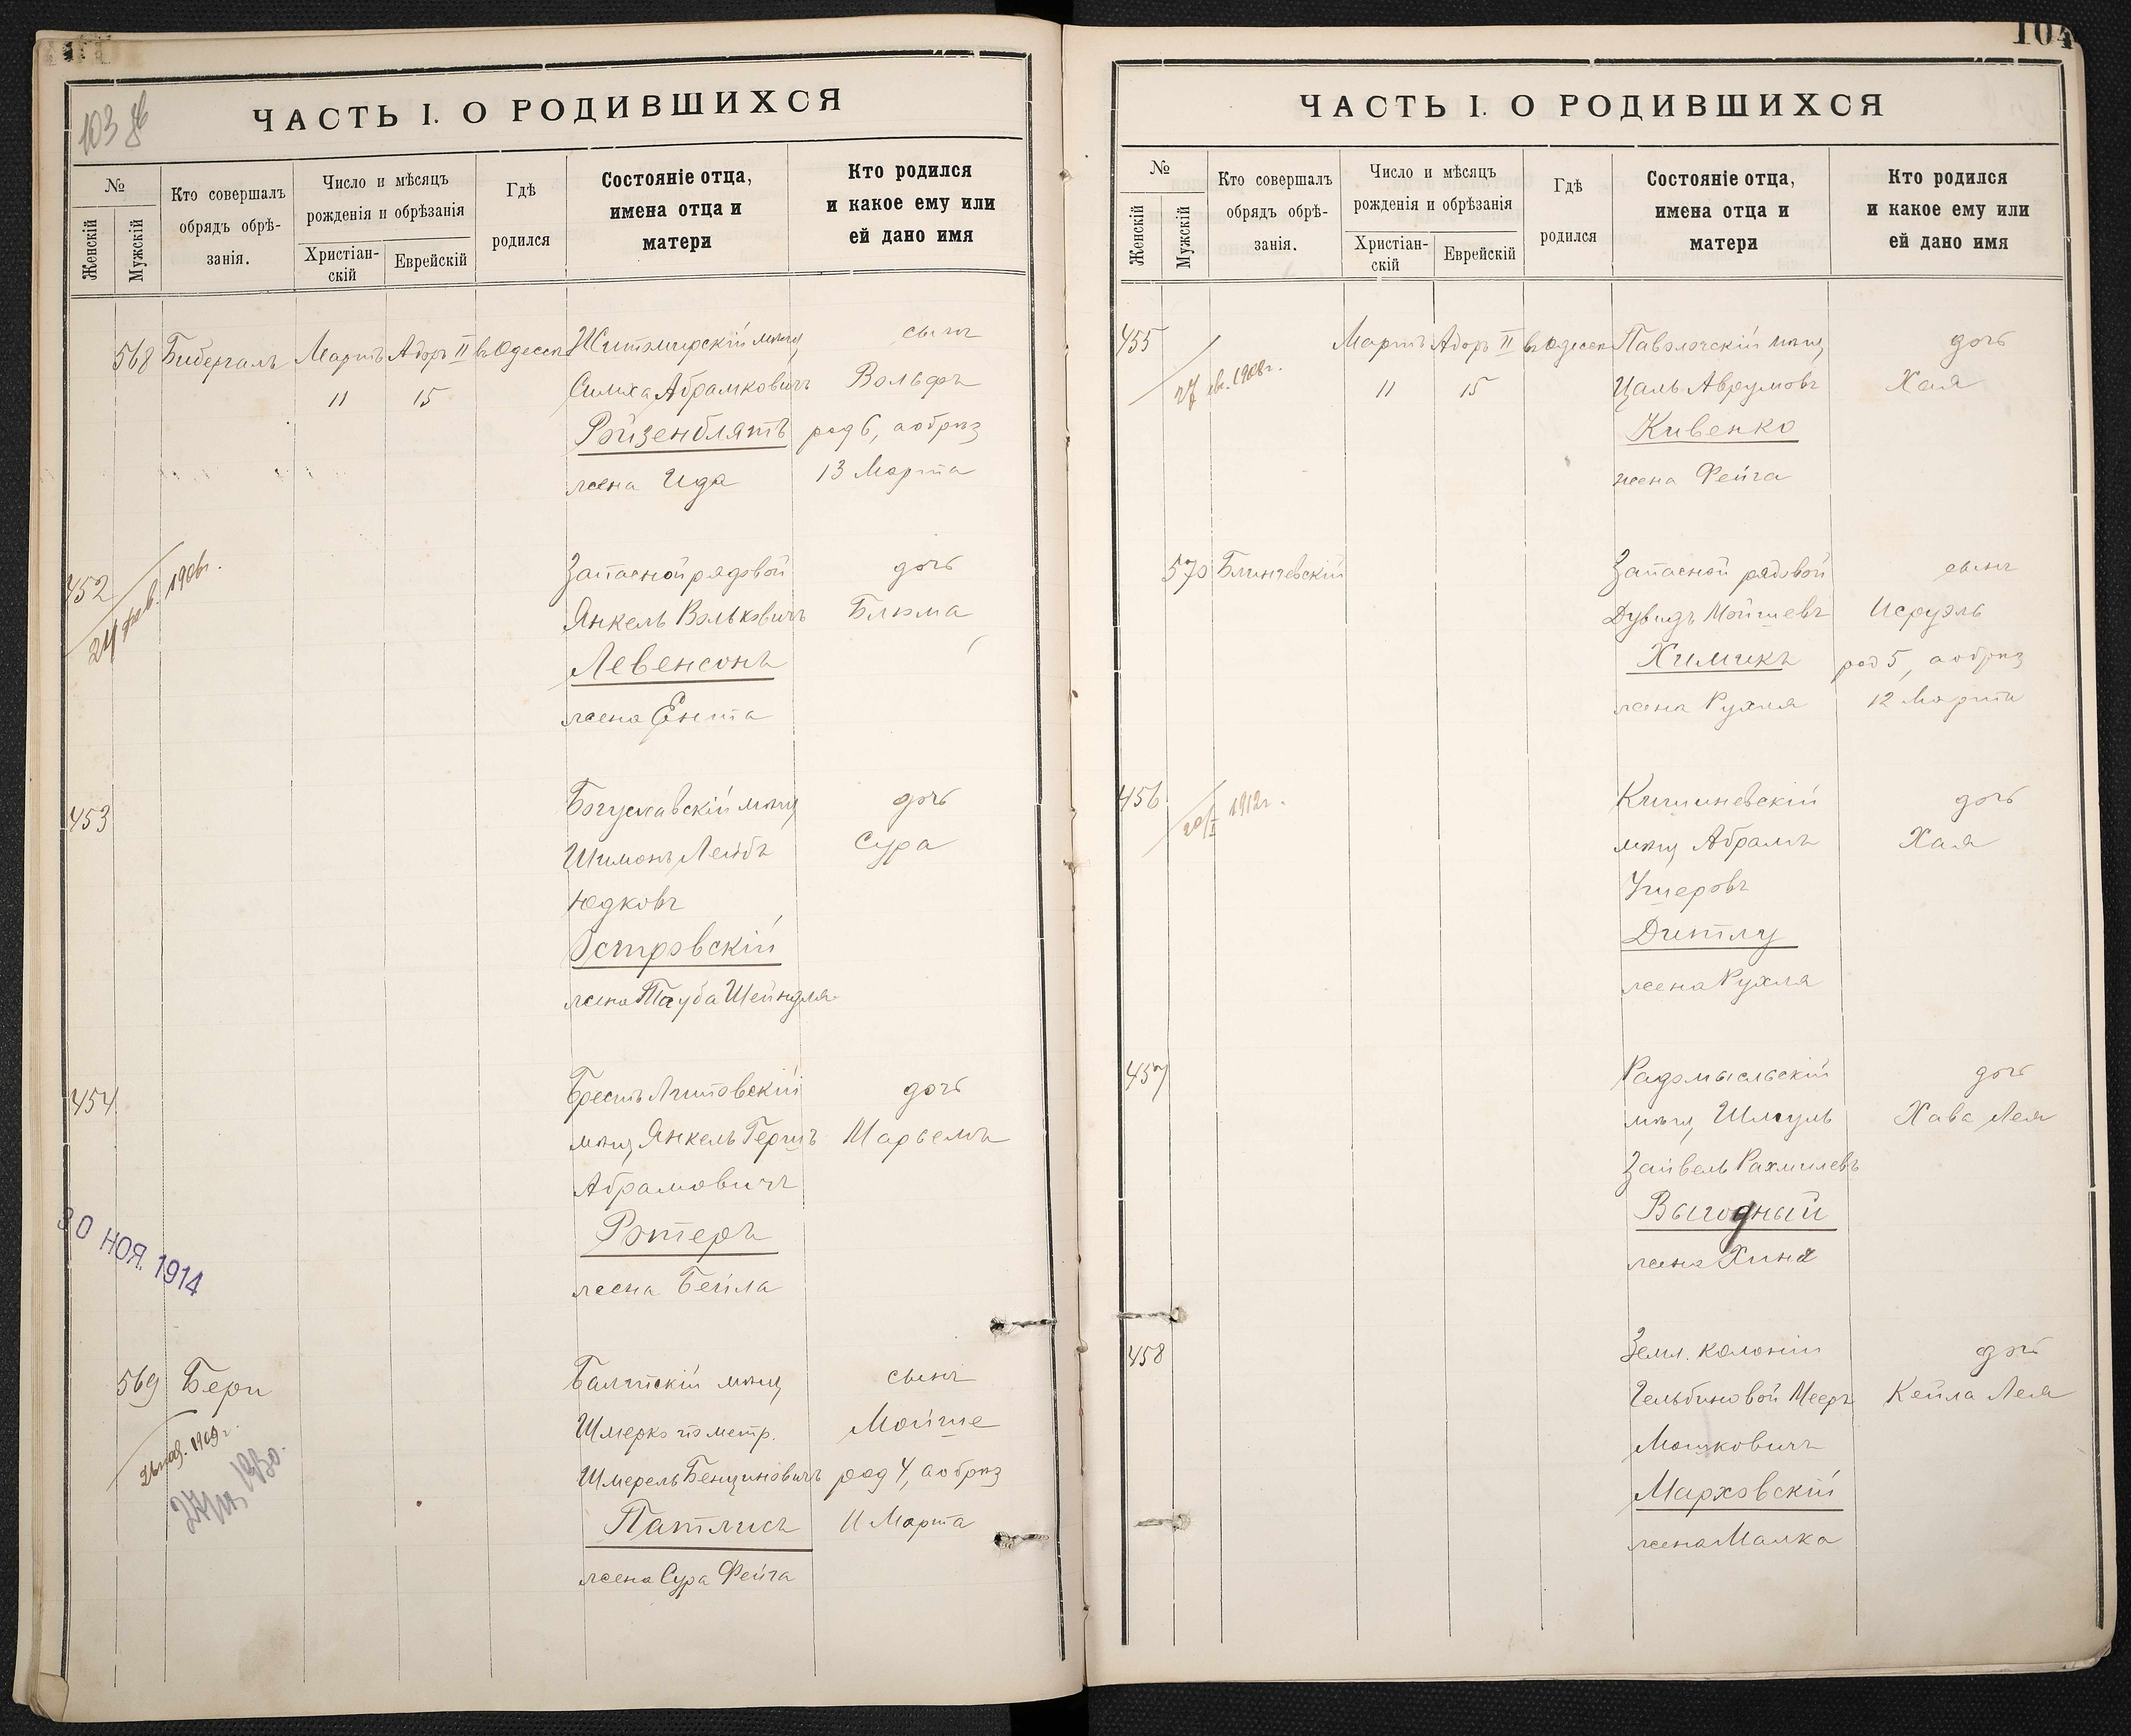 103 об
ЧАСТЬ I. О РОДИВШИХСЯ
№
Женскій
Мужскій
Кто совершалъ
обрядъ обрѣ-
занія.
Число и мѣсяцъ
рожденія и обрѣзанія
Христіан-
скій
Еврейскій
Гдѣ
родился
Состояніе отца,
имена отца и
матери
Кто родился
и какое ему или
ей дано имя
568 Бибергалъ Мартъ Адоръ II въ Одессѣ Житомирскій мѣщ сынъ
11 15 Симха Абрамковичъ Вольфъ
Ройзенблятъ род 6, а обрѣз
жена Ида 13 Марта
452 Запасной рядовой дочь
24 фев. 1906г.
Янкель Вольковичъ Блюма
Левенсонъ
жена Ента
453 Богуславскій мѣщ дочь
Шимонъ Лейбъ Сура
Юдковъ
Островскій
жена Тауба Шейндля
454 Брестъ Литовскій дочь
мѣщ Янкель Гершъ Марьемъ
Абрамовичъ
Ротеръ
30 НОЯ. 1914
жена Бейла
569 Бери Балтскій мѣщ сынъ
1909г.
Шмерко по метр. Мойше
Шмерель Бенционовичъ род 4, а обрѣз
1930.
Патлисъ 11 Марта
жена Сура Фейга
104
ЧАСТЬ I. О РОДИВШИХСЯ
№
Женскій
Мужскій
Кто совершалъ
обрядъ обрѣ-
занія.
Число и мѣсяцъ
рожденія и обрѣзанія
Христіан-
скій
Еврейскій
Гдѣ
родился
Состояніе отца,
имена отца и
матери
Кто родился
и какое ему или
ей дано имя
455 Мартъ Адоръ II въ Одессѣ Паволочскій мѣщ дочь
27 1908г.
11 15 Цаль Аврумовъ Хая
Кивенко
жена Фейга
570 Блинчевскій Запасной рядовой сынъ
Дувидъ Мойшевъ Исруэль
Химикъ род 5, а обрѣз
жена Рухля 12 Марта
456 Кишиневскій дочь
20/I 1912г.
мѣщ Абрамъ Хая
Ушеровъ
Дитлу
жена Рухля
457 Радомысльскій дочь
мѣщ Шмуль Хава Лея
Зайвель Рахмилевъ
Выгодный
жена Хина
458 Земл. колоніи дочь
Гельбиновой Мееръ Кейла Лея
Мошковичъ
Марховскій
жена Малка